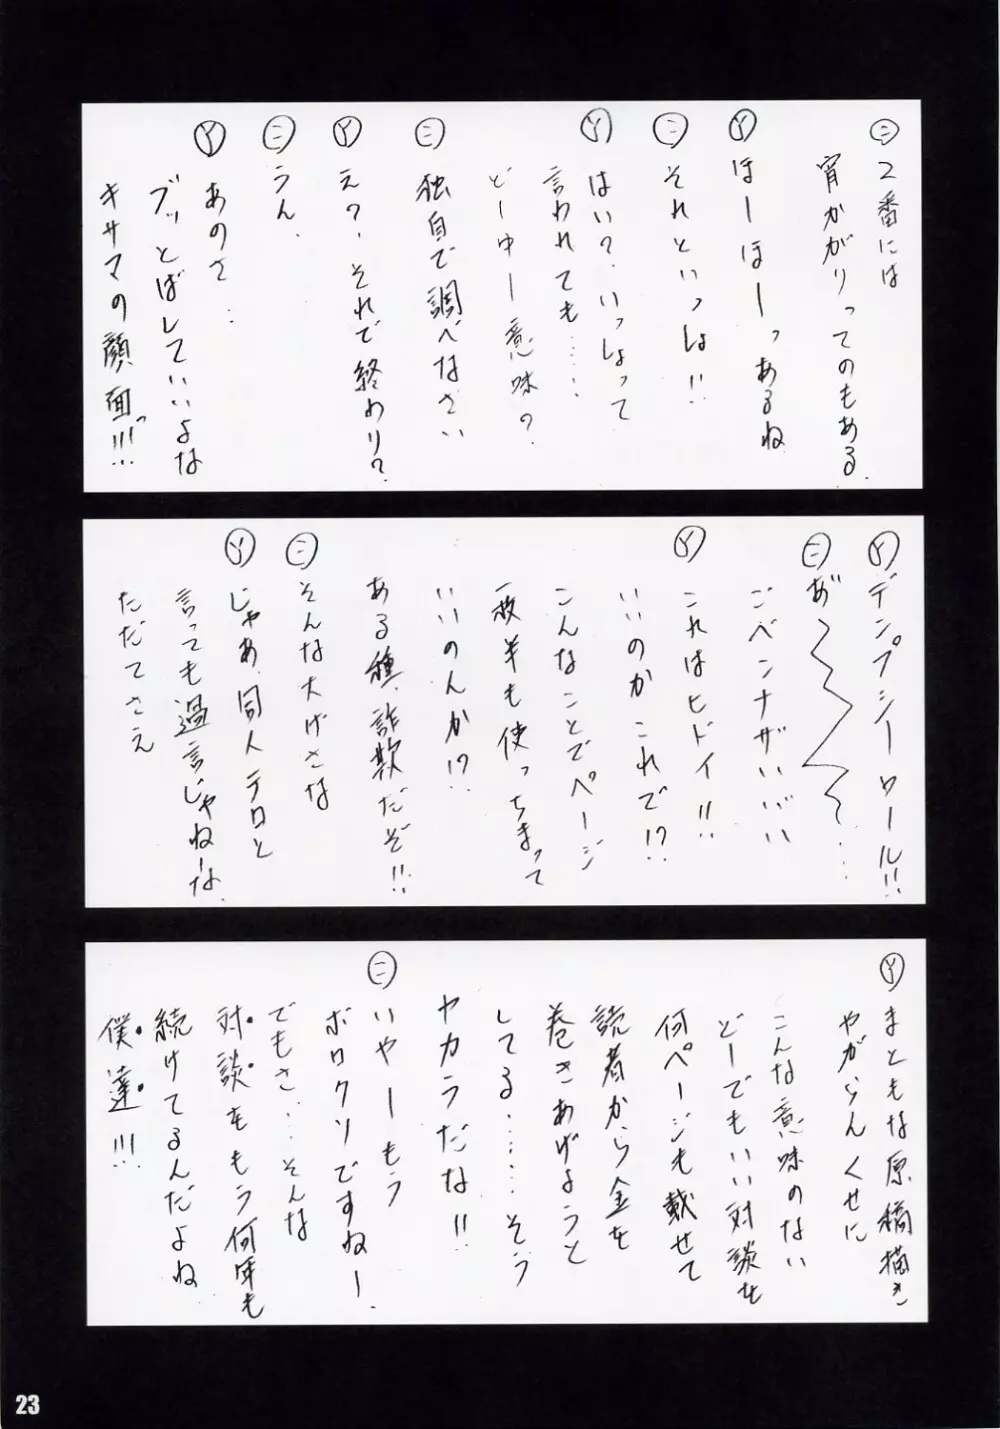 ㊁ 2番には
宵かがりってのもある
Ⓨ ほーほーっあるね
㊁ それといっしょ!!
Ⓨ はい?、いっしょって
言われても……
どーゆー意味の?
㊁ 独自で調べなさい
Ⓨ え?、それで終わり?
㊁ うん、
Ⓨ あのさ…
ブッとばしていいよな
キサマの顔面っ!!!
Ⓨ デンプシーロール!!
㊁ あ゛〜〜〜〜…
ごベンナザいいバい
Ⓨ これはヒドイ!!
いいのかこれで!?
こんなことでページ
一枚半も使っちまって
いいのんか!?
ある種、詐欺だぞ!!
㊁ そんな大げさな
Ⓨ じゃあ、同人テロと
言っても過言じゃねーな、
ただでさえ
Ⓨ まともな原稿描き
やがらんくせに
こんな意味のない
どーでもいい対談を
何ページも載せて
読者から金を
巻きあげようと
してる……そう
ヤカラだな!!
㊁ いやーもう
ボロクソですねー、
でもさ…そんな
対談をもう何年も
続けてるんだよね
僕達!!!
23